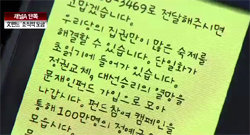 채널A 단독
3469로 전달해주시면
고맙겠습니다.
우리당의 집권만이 많은 숙제를
해결할 수 있습니다. 단일화가
초읽기에 들어가 있습니다.
정권교체, 대선승리의 열망을
문재인펀드 가입으로 모아
나갑시다. 펀드참여 캠페인을
통해 100만명의
모습시다